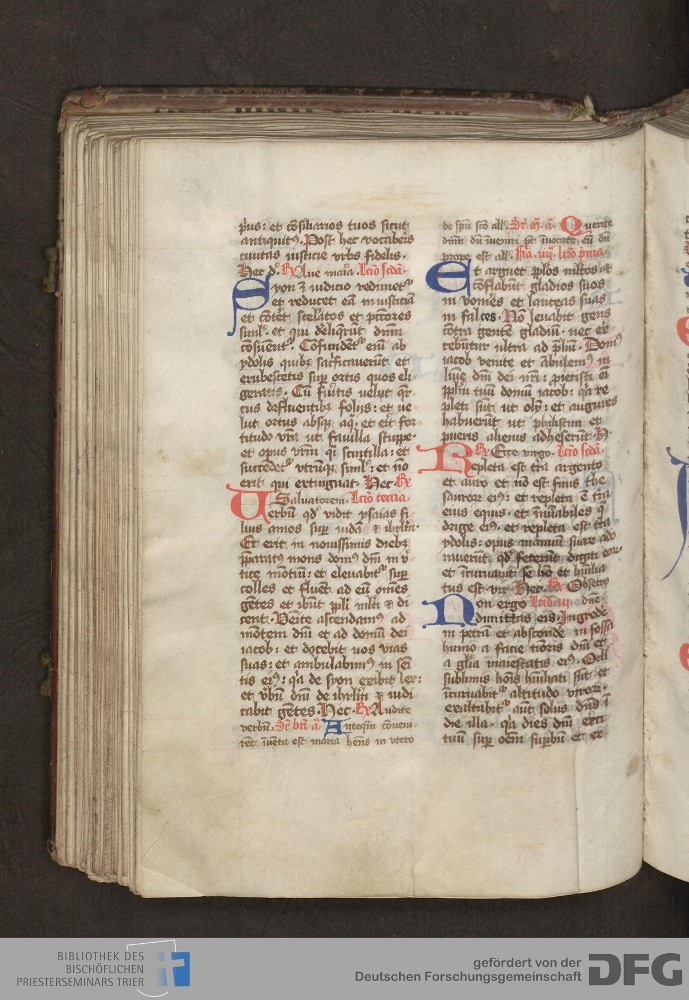 prius: et cōsiliarios tuos sicut
antiquitꝰ. Post hec vocaberis
ciuitas iusticie vrbs fidelis.
Hec d. R Aue maria. Lcio scda.
Syon ī iudicio redimetᷣ
et reducet eā in iusticia
et cōtet scelatos et pctores
simł. et qui deliqrūt dnm
cōsuent. Cōfundetᷣ eni ab
ydolis quibꝫ sacficauerūt et
erubescetis sup ortis quos eli-
geratis. Cū fūitis uelut qr
cus defluentibꝫ folijs: et ue-
lut ortus absqꝫ aq. et eīt for-
titudo vrā ut fauilla stuppe
et opus vrm qi scintilla: et
succedetᷣ vtrūqꝫ simł: et nō
erit qui extinguat. Hec. R
Saluatorem. Lcio tercia.
Uerbū qd vidit ysaias fi
lius amos sup iudā ⁊ ihrlm.
Et erit in nouissimis diebꝫ
pparatꝰ mons domꝰ dnī in v
tice mōtiū: et eleuabitᷣ sup
colles et fluēt ad eū oīnes
gētes et ibūt ppli mlti ⁊ di
cent. Venite ascendamꝰ ad
mōtem dnī et ad domū dei
iacob: et docebit nos vias
suas: et ambulabimꝰ in semi
tis eiꝰ: qa de syon exibit lex:
et vbū dnī de ihrlm ⁊ iudi
cabit gētes. Hec. R Audite
verbū. Antequā conuen-
rēt inuēta est maria hēns in vtero
de spū scō all. Querite
dnm dū inueniri pt inuocate eū dū
prope est all. Fia. iiij. lcio pma.
Et arguet pplos mltos et
cōflabūt gladios suos
in vomēs et lanceas suas
in falces. Nō leuabit gens
cōtra gentē gladiū. nec ex
cebūtur ultra ad pliū. Domꝰ
iacob venite et ābulemꝰ in
lumīe dnī dei nrī: piecisti eī
pplm tuū domū iacob: qa re
pleti sūt ut olī: et augures
habuerūt ut philistim et
pueris alienis adheserūt. H
R Ecce virgo. Lcio scda.
Repleta est tra argento
et auro et nō est finis the
sauroꝝ eiꝰ: et repleta ē tra
eius equis: et īnūabiles q
drige eiꝰ. et repleta est tra
ydolis: opus manuū suaꝝ ado
rauerūt. qd fecerūt digiti eoꝝ
et īcuruauit se hō et humilia
tus est vir. Hec. R Obsecro
Non ergo Lcio iij. dnē.
dimittas eis. Ingrede
in petrā et abscōde in fossa
humo a facie timoris dnī et
a glia maiestatis eiꝰ. Oclī
sublimis hoīs humiliati sūt et
īcuruabitᷣ altitudo viroꝝ.
exaltabitᷣ aūt solus dns ī
die illa. qa dies dnī exerci
tuū sup oēm supbū et ex
BIBLIOTHEK DES
BISCHÖFLICHEN
PRIESTERSEMINARS TRIER
gefördert von der
Deutschen Forschungsgemeinschaft
DFG